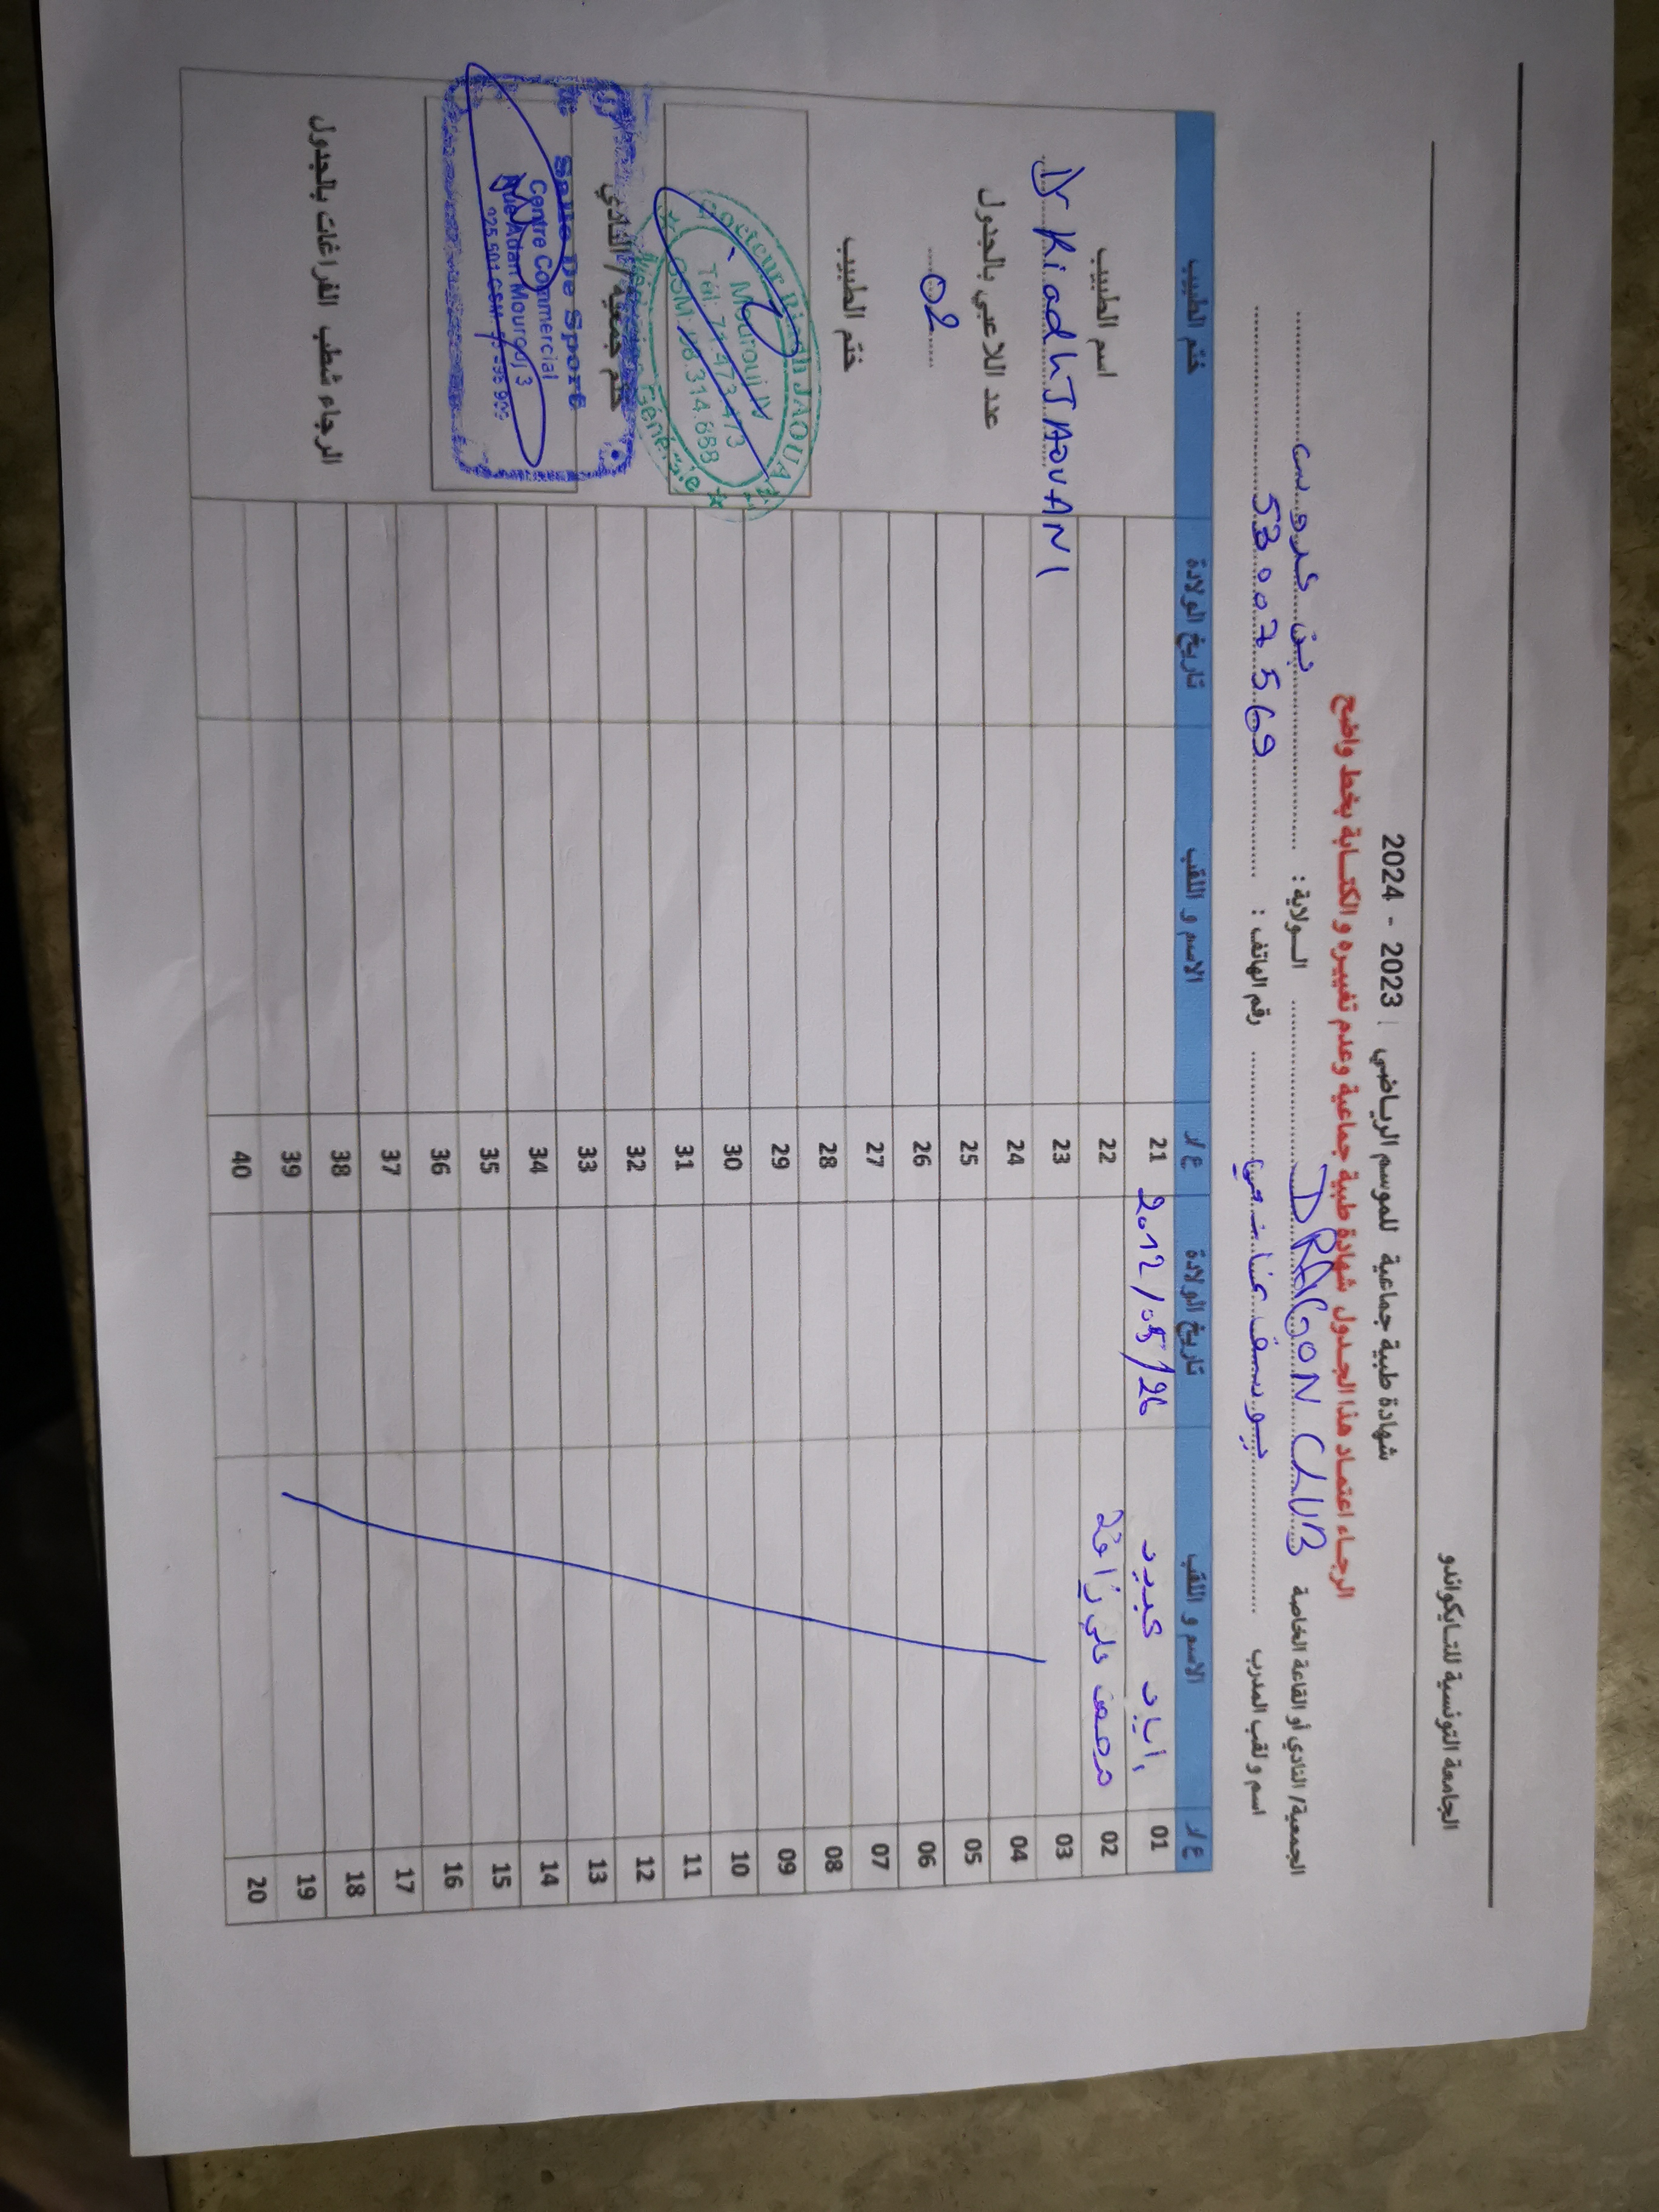 الجامعة التونسية للتايكواندو
شهادة طبية جماعية للموسم الرياضي 2023 - 2024
الرجاء اعتماد هذا الجدول شهادة طبية جماعية وعدم تغييره و الكتابة بخط واضح
الجمعية/ النادي أو القاعة الخاصة DRAGON CLUB الولاية : بن عروس
اسم و لقب المدرب يوسف رقم الهاتف : 53 007 569
ع/د الاسم و اللقب تاريخ الولادة ع/د الاسم و اللقب تاريخ الولادة ختم الطبيب
01 اياد 2012/05/26 21
02 22
03 23
04 24
05 25
06 26
07 27
08 28
09 29
10 30
11 31
12 32
13 33
14 34
15 35
16 36
17 37
18 38
19 39
20 40
اسم الطبيب
Dr Riadh JAOUANI
عدد اللاعبي بالجدول
02
ختم الطبيب
Docteur Riadh JAOUANI
Mourouj IV
Tél: 71.473.473
GSM: 98.314.688
Médecine Générale
ختم جمعية/ النادي
Salle De Sport
Centre Commercial
Rue Adan Mourouj 3
الرجاء شطب الفراغات بالجدول